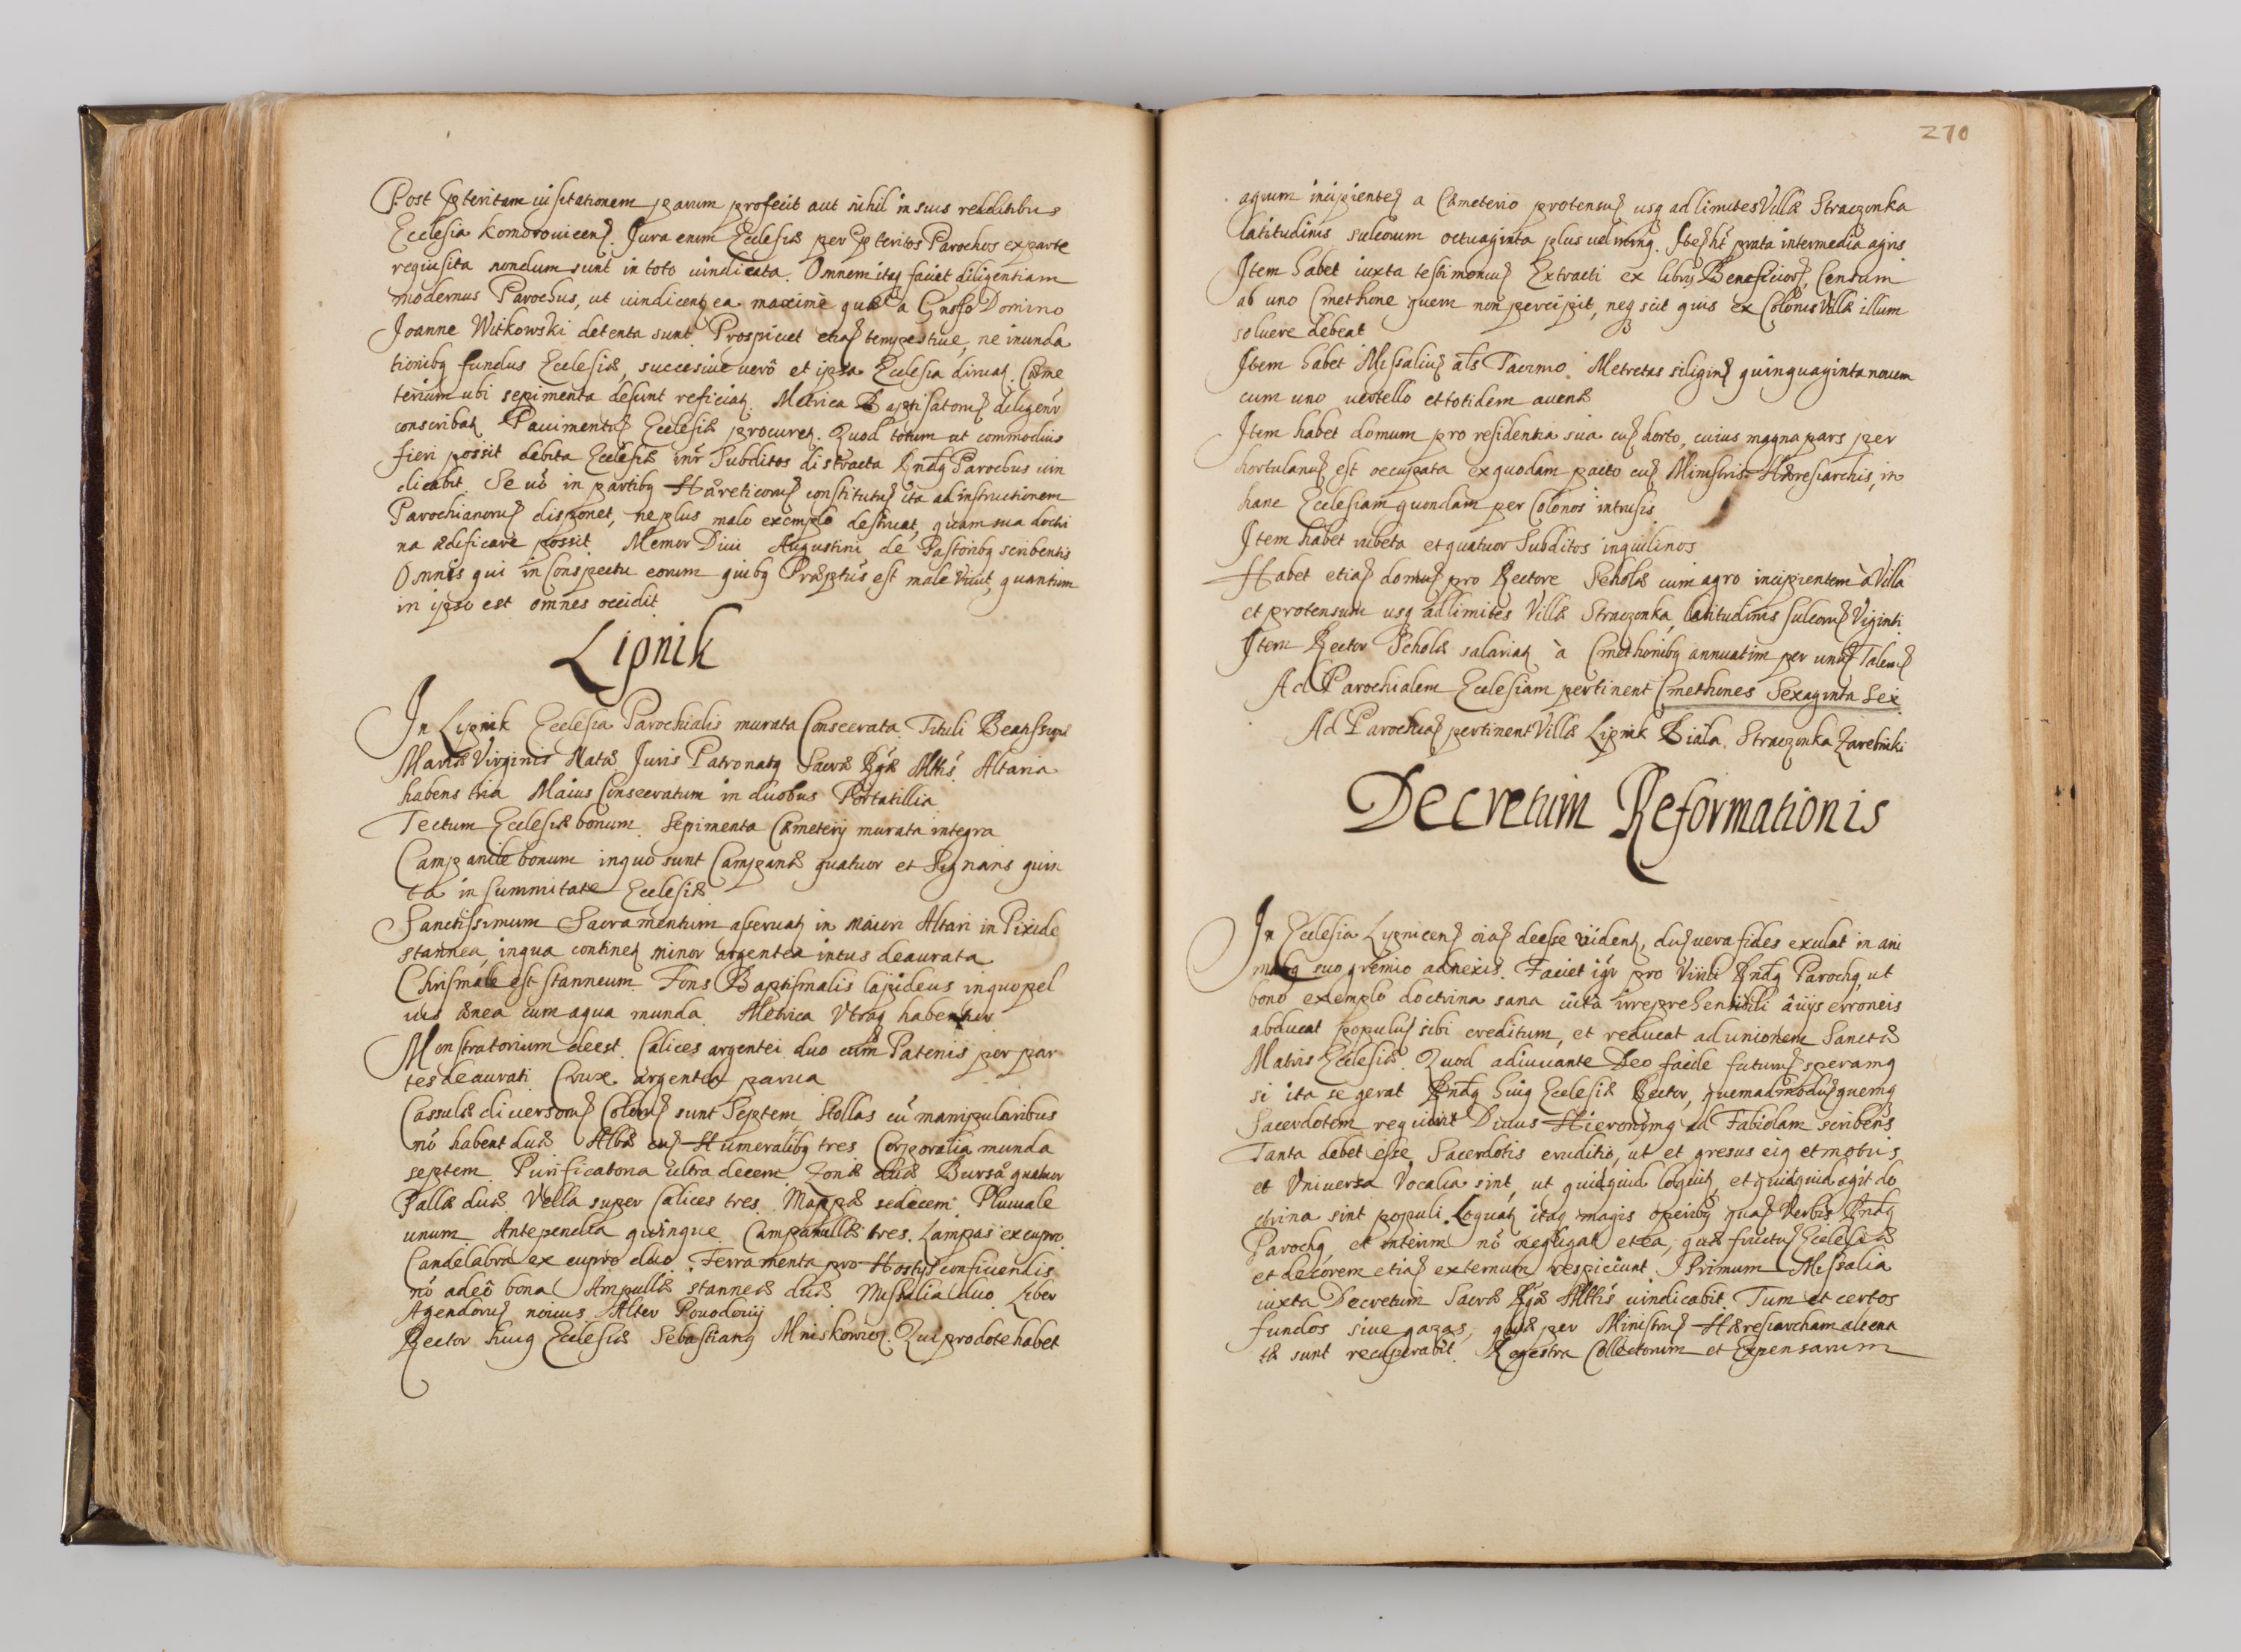 Post Ppteritam uisitationem parum profecit aut nihil in suis redditibus
Ecclesia Komorouicens. Jura enim Ecclesiæ per Ppteritos Parochos ex parte
requisita nondum sunt in toto uindicata. Omnem itaq faciet diligentiam
modernus Parochus, ut uindicent ea maxime quæ a Gnoso Domino
Joanne Witkowski detenta sunt. Prospiciet etia tempestiue, ne inunda
tionibq fundus Ecclesiæ, succesiue uerò et ipsa Ecclesia diruat. Cæme
terium ubi sepimenta desunt reficiat. Metrica Baptisatoru diligenr
conscribat Pauimentu Ecclesiæ procuret. Quod totum ut commodius
fieri possit debita Ecclesiæ inr Subditos distracta Rndq Parochus uin
dicabit. Se uò in partibq Hæreticoru constitutu ita ad instructionem
Parochianoru disponet, ne plus malo exemplo destruat, quam sua doctri
na ædificare possit. Memor Diui Augustini de Pastoribq scribentis
Omnes qui in Conspectu eorum quibq Præptus est male viuit, quantum
in ipso est omnes occidit
Lipnik
In Lipnik Ecclesia Parochialis murata Consecrata. Tituli Beatissimæ
Mariæ Virginis Natæ Juris Patronatq Sacræ Rgæ Mttis. Altaria
habens tria Maius Consecratum in duobus Portatillia
Tectum Ecclesiæ bonum. Sepimenta Cæmeterij murata integra
Campanile bonum in quo sunt Campanæ quatuor et Signans quin
ta in summitate Ecclesiæ
Sanctissimum Sacramentum aseruat in maiori Altari in Pixide
stannea, in qua continet minor argentea intus deaurata
Chrismale est stanneum. Fons Baptismalis lapideus in quo pel
uis ænea cum aqua munda. Metrica Vtraq habentur
Monstratorium deest. Calices argentei duo cum Patenis per par
tes deaurati Crux argentea parua
Cassulæ diuersoru Coloru sunt Septem, Stollas cu manipularibus
no habent duæ Albæ cu Humeralibq tres Corporalia munda
septem Purificatoria ultra decem Zonæ duæ Bursæ quatuor
Pallæ duæ Vella super Calices tres. Mappæ sedecem Pluuiale
unum Antependia quinque. Campanullæ tres. Lampas ex cupro
Candelabra ex cupro duo Ferramenta pro Hostijs conficiendis
no adeo bona Ampullæ stanneæ duæ Missalia duo Liber
Agendoru nouus Alter Pouodouij
Rector huiq Ecclesiæ Sebastianq Mniskowicz. Qui pro dote habet
270
agrum incipiente a Cæmeterio protensu usq ad limites Villæ Straczonka
latitudinis sulcorum octuaginta plus uel minq. Ite ht prata intermedia agris
Item habet iuxta testimoniu Extracti ex libris Beneficioru, Censum
ab uno Cmethone quem non percipit, neq scit quis ex Colonis Villæ illum
soluere debeat
Item habet Missaliu als Taczmo Metretas siligins quinquaginta nouem
cum uno uertello et totidem auenæ
Item habet domum pro residentia sua cu horto, cuius magna pars per
hortulanu est occupata ex quodam pacto cu Ministris Hæresiarchis, in
hanc Ecclesiam quondam per Colonos intrusis
Item habet rubeta et quatuor Subditos inquilinos
Habet etia domu pro Rectore Scholæ cum agro incipientem à Villa
et protensum usq ad limites Villæ Straczonka, latitudinis sulcoru Viginti
Item Rector Scholæ salariat à Cmethonibq annuatim per unu Taleru
Ad Parochialem Ecclesiam pertinent Cmethones Sexaginta Sex
Ad Parochia pertinent Villæ Lipnik Biala Straczonka
Decretum Reformationis
In Ecclesia Lypnicens oia deesse uident, du uera fides exulat in ani
mabq suo gremio adnexis. Faciet igr pro Virili Rndq Parochq, ut
bono exemplo doctrina sana uita irreprehensibili a uijs erroneis
abducat populu sibi creditum, et reducat ad unionem Sanctæ
Matris Ecclesiæ. Quod adiuuante Deo facile futuru speramq
si ita se gerat Rndq huiq Ecclesiæ Rector, quemadmodu quemq
Sacerdotem requirit Diuus Hieronimq ad Fabiolam scribens
Tanta debet esse Sacerdotis eruditio, ut et gresus eiq et motus
et Vniuersa Vocalia sint, ut quidquid loquit, et quidquid agit do
ctrina sint populi. Loquat itaq magis operibq qua Verbis Rndq
Parochq, et interim no negligat et ea, quæ fructu Ecclesiæ
et decorem etia externum respiciunt. IPrimum Missalia
iuxta Decretum Sacræ Rgæ Mttis uindicabit. Tum et certos
fundos siue gazas, quæ per Ministru Hæresiarcham aliena
tæ sunt recuperabit. Regestra Collectorum et Expensarum